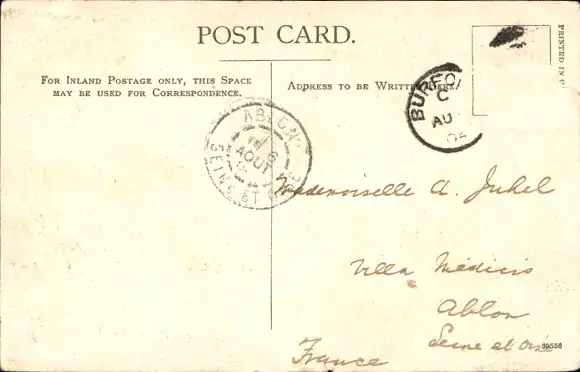 POST CARD.
FOR INLAND POSTAGE ONLY, THIS SPACE
MAY BE USED FOR CORRESPONDENCE.
ADDRESS TO BE WRITTEN HERE.
PRINTED IN
BUFFO
C
AU
04
ABLON
AOUT
SEINE ET OISE
Mademoiselle A. Juhel
Villa Médicis
Ablon
Seine et Oise
France
39556